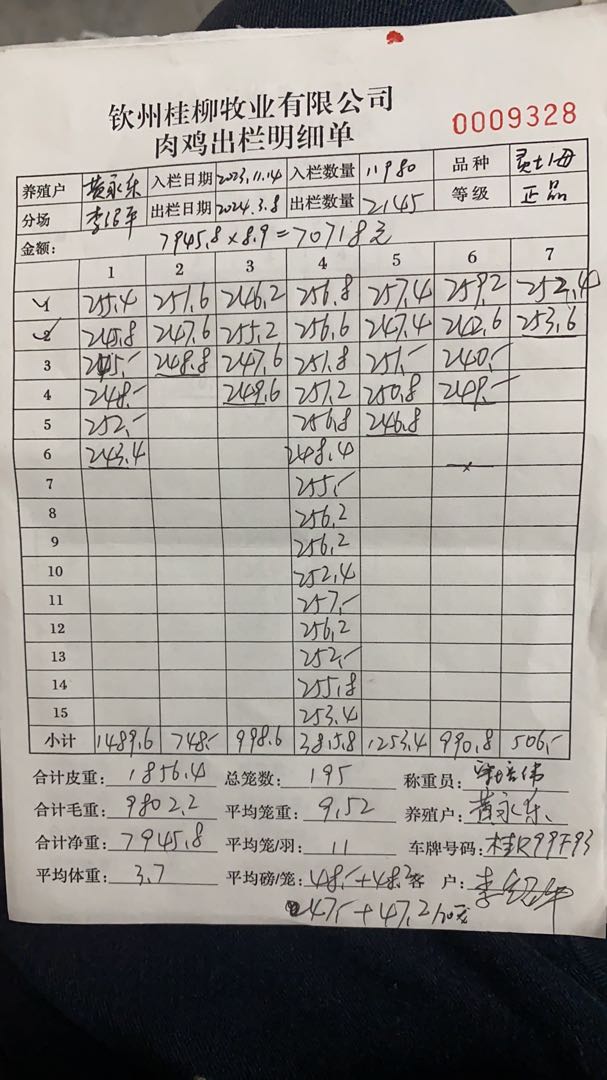 钦州桂柳牧业有限公司
肉鸡出栏明细单
0009328
养殖户 黄永乐 入栏日期 2023.11.14 入栏数量 11980 品种 灵土2母
分场 出栏日期 2024.3.8 出栏数量 2145 等级 正品
金额: 7945.8×8.9=70718元
1 2 3 4 5 6 7
1 255.4 251.6 246.2 256.8 257.4 259.2 252.4
2 245.8 247.6 255.2 256.6 247.4 242.6 253.6
3 245.- 248.8 247.6 251.8 251.- 240.-
4 248.- 249.6 251.2 250.8 249.-
5 252.- 256.8 246.8
6 243.4 248.4
7 255.-
8 256.2
9 256.2
10 252.4
11 257.-
12 256.2
13 252.-
14 255.8
15 253.4
小计 1489.6 748.- 998.6 3815.8 1253.4 990.8 506.-
合计皮重: 1856.4 总笼数: 195 称重员:
合计毛重: 9802.2 平均笼重: 9.52 养殖户: 黄永乐
合计净重: 7945.8 平均笼/羽: 11 车牌号码: 桂R99F93
平均体重: 3.7 平均磅/笼: 48.-+48.2 客 户:
47.-+47.2